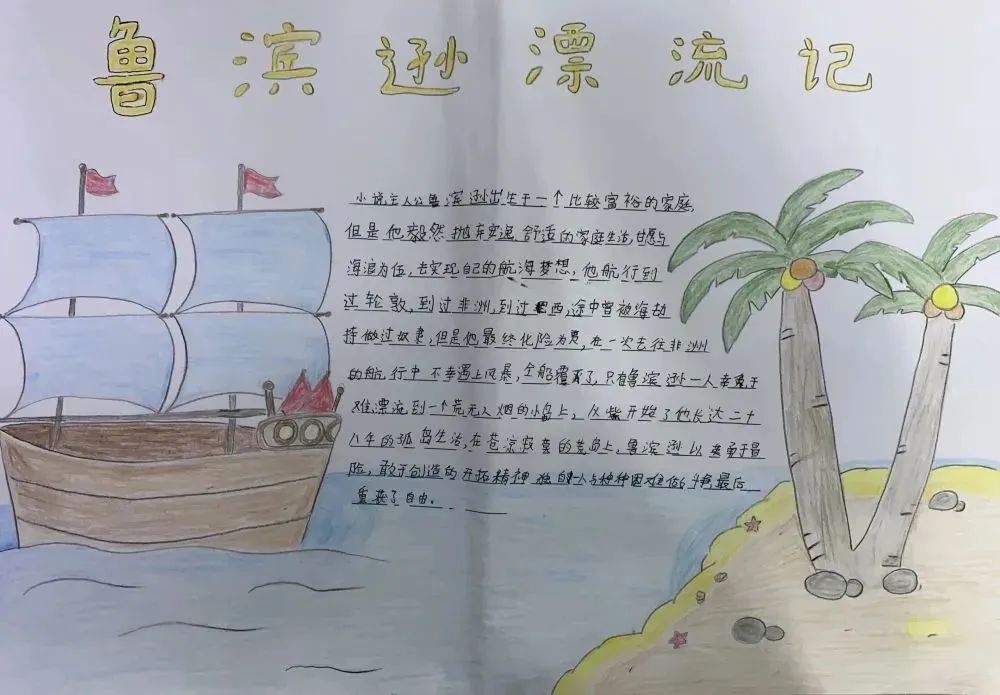 鲁滨逊漂流记
小说主人公鲁滨逊出生于一个比较富裕的家庭,
但是他毅然抛弃安逸舒适的家庭生活,甘愿与
海浪为伍,去实现自己的航海梦想,他航行到
过轮敦,到过非洲,到过西,途中曾被海劫
持做过奴隶,但是他最终化险为夷,在一次去往非洲
的航行中不幸遇上风暴,全船覆灭了,只有鲁滨逊一人幸免于
难漂流到一个荒无人烟的小岛上,从此开始了他长达二十
八年的孤岛生活,在苍凉寂寞的荒岛上,鲁滨逊以勇于冒
险,敢于创造的开拓精神独自一人与种种困难做斗争,最后
重获了自由。